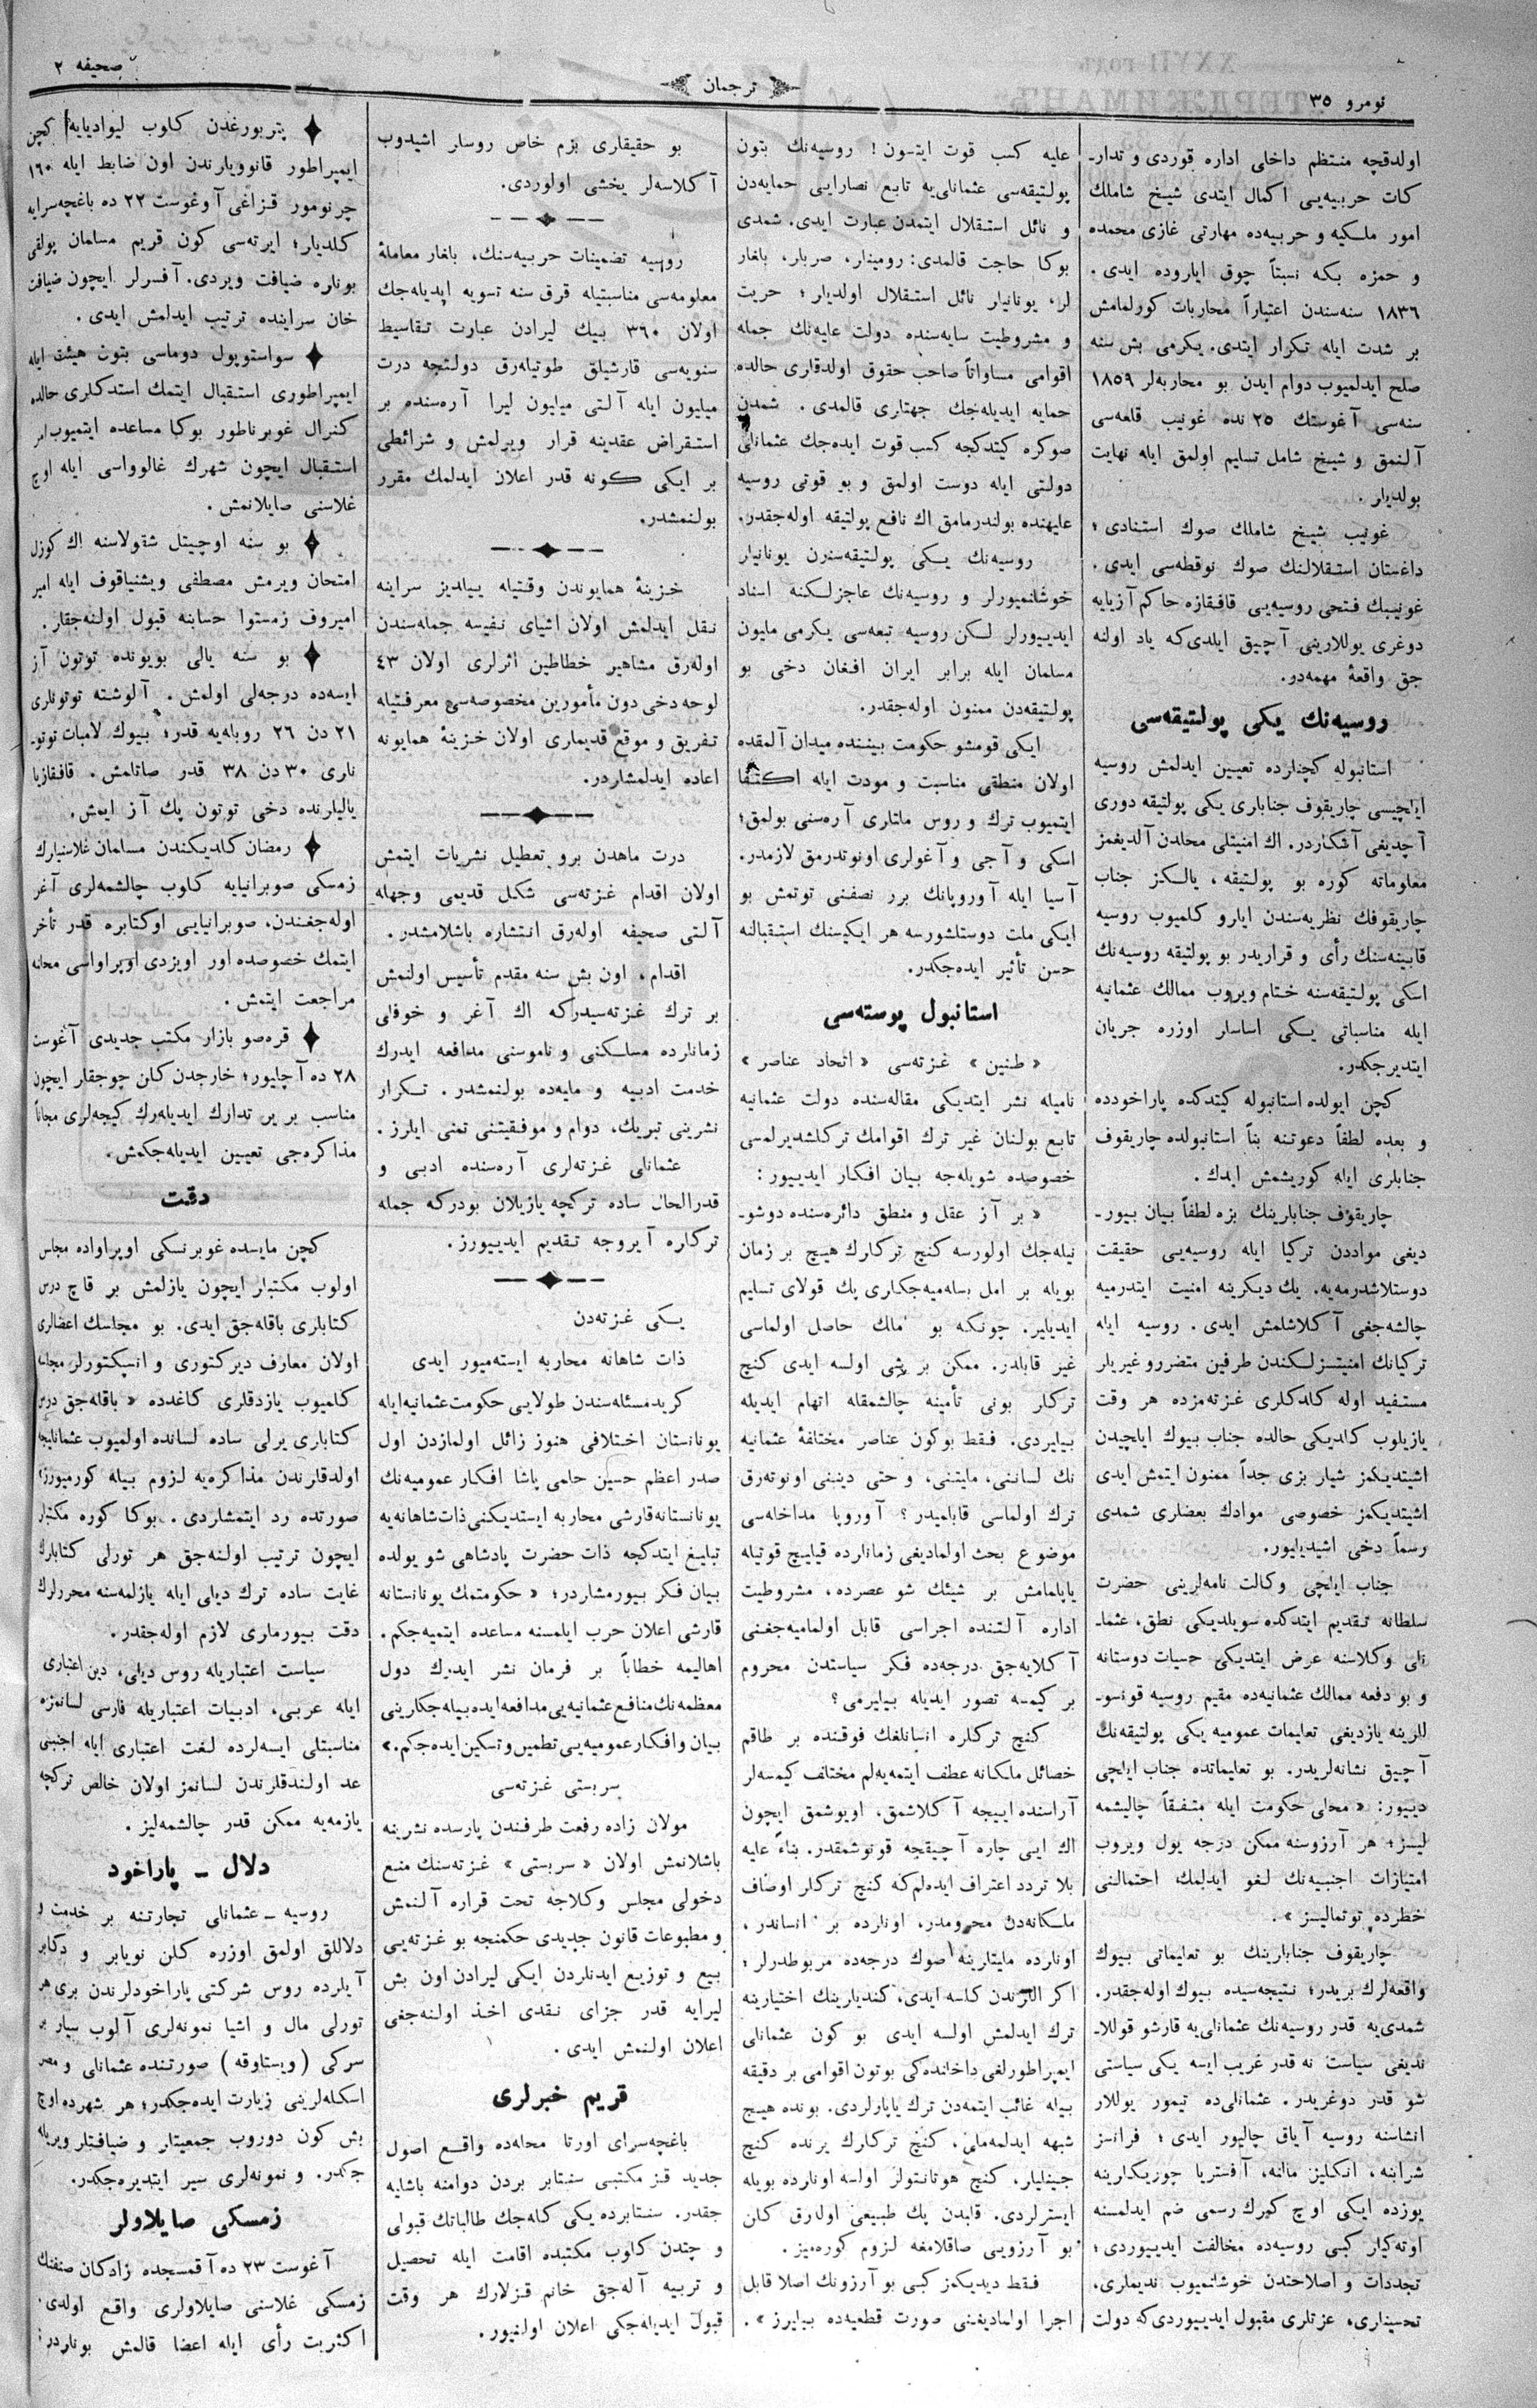 نومرو ۳۵
ترجمان
صحیفه ۲
اولدقچه منتظم داخلی اداره قوردی و تدارـ
كات حربیه‌یی اكمال ایتدی شیخ شاملك
امور ملكیه و حربیه‌ده مهارتی غازی محمده
و حمزه بكه نسبتاً چوق ایاروده ایدی.
۱۸۳٦ سنه‌سندن اعتباراً محاربات كورلمامش
بر شدت ایله تكرار ایتدی. یكرمی بش سنه
صلح ایدلمیوب دوام ایدن بو محاربه‌لر ۱۸۵۹
سنه‌سی آغوستك ۲۵ نده غونیب قلعه‌سی
آلنمق و شیخ شامل تسلیم اولمق ایله نهایت
بولدیار.
غونیب شیخ شاملك صوك استنادی؛
داغستان استقلالنك صوك نوقطه‌سی ایدی.
غونیبك فتحی روسیه‌یی قافقازه حاكم آزیایه
دوغری یوللارینی آچیق ایلدی‌كه یاد اولنه
جق واقعهٔ مهمه‌در.
روسیه‌نك یكی پولتیقه‌سی
استانبوله كچنلرده تعیین ایدلمش روسیه
ایلچیسی چاریقوف جنابلری یكی پولتیقه دوری
آچدیغی آشكاردر. اك امنیتلی محلدن آلدیغمز
معلوماته كوره بو پولتیقه، یالكز جناب
چاریقوفك نظریه‌سندن ایلرو كلمیوب روسیه
قابینه‌سنك رأی و قراریدر بو پولتیقه روسیه‌نك
اسكی پولتیقه‌سنه ختام ویروب ممالك عثمانیه
ایله مناسباتی یكی اساسلر اوزره جریان
ایتدیرجكدر.
كچن ایولده استانبوله كیتدكده پاراخودده
و بعده لطفاً دعوتنه بناً استانبولده چاریقوف
جنابلری ایله كوریشمش ایدك.
چاریقوف جنابلرینك بزه لطفاً بیان بیورـ
دیغی مواددن تركیا ایله روسیه‌یی حقیقت
دوستلاشدرمه‌یه. یك دیكرینه امنیت ایتدرمیه
چالشه‌جغی آكلاشلمش ایدی. روسیه ایله
تركیانك امنیتسزلكندن طرفین متضرر و غیریلر
مستفید اوله كلدكلری غزته‌مزده هر وقت
یازیلوب كلدیكی حالده جناب بیوك ایلچیدن
اشیتدیكمز شیلر بزی جداً ممنون ایتمش ایدی
اشیتدیكمز خصوصی موادك بعضلری شمدی
رسماً دخی اشیدیلیور.
جناب ایلچی وكالت نامه‌لرینی حضرت
سلطانه تقدیم ایتدكده سویلدیكی نطق، عثماـ
نلی وكلاسنه عرض ایتدیكی حسیات دوستانه
و بو دفعه ممالك عثمانیه‌ده مقیم روسیه قونسوـ
للرینه یازدیغی تعلیمات عمومیه یكی پولتیقه‌نك
آچیق نشانه‌لریدر. بو تعلیماتده جناب ایلچی
دییور: «محلی حكومت ایله متفقاً چالیشمه
لیسز؛ هر آرزوسنه ممكن درجه یول ویروب
امتیازات اجنبیه‌نك لغو ایدلمك احتمالنی
خطرده توتمالیسز».
چاریقوف جنابلرینك بو تعلیماتی بیوك
واقعه‌لرك بریدر؛ نتیجه‌سیده بیوك اوله‌جقدر.
شمدی‌یه قدر روسیه‌نك عثمانلی‌یه قارشو قوللاـ
ندیغی سیاست نه قدر غریب ایسه یكی سیاستی
شو قدر دوغریدر. عثمانلی‌ده تیمور یوللار
انشاسنه روسیه آیاق چالیور ایدی؛ فرانسز
شرابنه، انكلیز مالنه، آفستریا چوریكلرینه
یوزده ایكی اوچ كمرك رسمی ضم ایدلمسنه
اوته‌كیلر كبی روسیه‌ده مخالفت ایدییوردی؛
تجددات و اصلاحندن خوشانمیوب ندیملری،
تحسینلری، عزتلری مقبول ایدییوردی‌كه دولت
علیه كسب قوت ایتسون! روسیه‌نك بتون
پولتیقه‌سی عثمانلی‌یه تابع نصارایی حمایه‌دن
و نائل استقلال ایتمدن عبارت ایدی. شمدی
بوكا حاجت قالمدی: رومینلر، صربلر، بلغار
لر، یونانیلر نائل استقلال اولدیلر؛ حریت
و مشروطیت سایه‌سنده دولت علیه‌نك جمله
اقوامی مساواتاً صاحب حقوق اولدقلری حالده
حمایه ایدیله‌جك جهتلری قالمدی. شمدن
صوكره كیتدكجه كسب قوت ایده‌جك عثمانلی
دولتی ایله دوست اولمق و بو قوتی روسیه
علیهنده بولندرمامق اك نافع پولتیقه اوله‌جقدر.
روسیه‌نك یكی پولتیقه‌سندن یونانیلر
خوشانمیورلر و روسیه‌نك عاجزلكنه اسناد
ایدییورلر لكن روسیه تبعه‌سی یكرمی ملیون
مسلمان ایله برابر ایران افغان دخی بو
پولتیقه‌دن ممنون اوله‌جقدر.
ایكی قومشو حكومت بیننده میدان آلمقده
اولان منطقی مناسبت و مودت ایله اكتفا
ایتمیوب ترك و روس ملتلری آره‌سنی بولمق؛
اسكی و آجی و آغولری اونوتدرمق لازمدر.
آسیا ایله آوروپانك برر نصفنی توتمش بو
ایكی ملت دوستلشورسه هر ایكیسنك استقبالنه
حسن تأثیر ایده‌جكدر.
استانبول پوسته‌سی
«طنین» غزته‌سی «اتحاد عناصر»
نامیله نشر ایتدیكی مقاله‌سنده دولت عثمانیه
تابع بولنان غیر ترك اقوامك تركلشدیرلمسی
خصوصده شویله‌جه بیان افكار ایدییور:
«بر آز عقل و منطق دائره‌سنده دوشوـ
نیله‌جك اولورسه كنج تركلرك هیچ بر زمان
بویله بر امل بسله‌میه‌جكلری پك قولای تسلیم
ایدیلیر. چونكه بو املك حاصل اولماسی
غیر قابلدر. ممكن بر شی اولسه ایدی كنج
تركلر بونی تأمینه چالشمقله اتهام ایدیله
بیلیردی. فقط بوكون عناصر مختلفهٔ عثمانیه
نك لساننی، ملیتنی، و حتی دیننی اونوته‌رق
ترك اولماسی قابلمیدر؟ آوروپا مداخله‌سی
موضوع بحث اولمادیغی زمانلرده قیلیچ قوتیله
یاپلمامش بر شیئك شو عصرده، مشروطیت
اداره آلتنده اجراسی قابل اولمامیه‌جغنی
آكلایه‌جق درجه‌ده فكر سیاستدن محروم
بر كیمسه تصور ایدیله بیلیرمی؟
كنج تركلره انسانلغك فوقنده بر طاقم
خصائل ملكانه عطف ایتمه‌یه‌لم مختلف كیمسه‌لر
آراسنده اییجه آكلاشمق، اویوشمق ایچون
اك ایی چاره آچیقچه قونوشمقدر. بناءً علیه
بلا تردد اعتراف ایده‌لم‌كه كنج تركلر اوصاف
ملكانه‌دن محرومدر، اونلرده بر انساندر،
اونلرده ملیتلرینه صوك درجه‌ده مربوطدرلر؛
اكر اللرندن كلسه ایدی، كندیلرینك اختیارینه
ترك ایدلمش اولسه ایدی بو كون عثمانلی
ایمپراطورلغی داخلنده‌كی بوتون اقوامی بر دقیقه
بیله غائب ایتمه‌دن ترك یاپارلردی. بونده هیچ
شبهه ایدلمه‌ملی، كنج تركلرك یرنده كنج
چینلیلر، كنج هوتانتولر اولسه اونلرده بویله
ایسترلردی. قلبدن پك طبیعی اولارق كلن
بو آرزویی صاقلامغه لزوم كوره‌میز.
فقط دیدیكمز كبی بو آرزونك اصلا قابل
اجرا اولمادیغنی صورت قطعیه‌ده بیلیرز».
بو حقیقلری بزم خاص روسلر اشیدوب
آكلاسه‌لر یخشی اولوردی.
روسیه تضمینات حربیه‌سنك، بلغار معاملهٔ
معلومه‌سی مناسبتیله قرق سنه تسویه ایدیله‌جك
اولان ۳٦۰ بیك لیرادن عبارت تقاسیط
سنویه‌سی قارشیلق طوتیله‌رق دولتجه درت
میلیون ایله آلتی میلیون لیرا آره‌سنده بر
استقراض عقدینه قرار ویرلمش و شرائطی
بر ایكی كونه قدر اعلان ایدلمك مقرر
بولنمشدر.
خزینهٔ همایوندن وقتیله ییلدیز سراینه
نقل ایدلمش اولان اشیای نفیسه جمله‌سندن
اوله‌رق مشاهیر خطاطین اثرلری اولان ٤۳
لوحه دخی دون مأمورین مخصوصه‌سی معرفتیله
تفریق و موقع قدیملری اولان خزینهٔ همایونه
اعاده ایدلمشلردر.
درت ماهدن برو تعطیل نشریات ایتمش
اولان اقدام غزته‌سی شكل قدیمی وجهله
آلتی صحیفه اوله‌رق انتشاره باشلامشدر.
اقدام، اون بش سنه مقدم تأسیس اولنمش
بر ترك غزته‌سیدركه اك آغر و خوفلی
زمانلرده مسلكنی و ناموسنی مدافعه ایدرك
خدمت ادبیه و ملیه‌ده بولنمشدر. تكرار
نشرینی تبریك، دوام و موفقیتنی تمنی ایلرز.
عثمانلی غزته‌لری آره‌سنده ادبی و
قدرالحال ساده تركچه یازیلان بودركه جمله
تركلره آیروجه تقدیم ایدییورز.
یكی غزته‌دن
ذات شاهانه محاربه ایسته‌میور ایدی
كرید مسئله‌سندن طولایی حكومت عثمانیه ایله
یونانستان اختلافی هنوز زائل اولمازدن اول
صدر اعظم حسین حلمی پاشا افكار عمومیه‌نك
یونانستانه قارشی محاربه ایستدیكنی ذات شاهانه‌یه
تبلیغ ایتدكجه ذات حضرت پادشاهی شو یولده
بیان فكر بیورمشلردر؛ «حكومتمك یونانستانه
قارشی اعلان حرب ایلمسنه مساعده ایتمیه‌جكم.
اهالیمه خطاباً بر فرمان نشر ایدرك دول
معظمه‌نك منافع عثمانیه‌یی مدافعه ایده بیله جكلرینی
بیان و افكار عمومیه‌یی تطمین و تسكین ایده‌جكم.»
سربستی غزته‌سی
مولان زاده رفعت طرفندن پارسده نشرینه
باشلانمش اولان «سربستی» غزته‌سنك منع
دخولی مجلس وكلاجه تحت قراره آلنمش
و مطبوعات قانون جدیدی حكمنجه بو غزته‌یی
بیع و توزیع ایدنلردن ایكی لیرادن اون بش
لیرایه قدر جزای نقدی اخذ اولنه‌جغی
اعلان اولنمش ایدی.
قریم خبرلری
باغچه‌سرای اورتا محله‌ده واقع اصول
جدید قز مكتبی سنتابر بردن دوامنه باشلیه
جقدر. سنتابرده یكی كله‌جك طالباتك قبولی
و چتدن كلوب مكتبده اقامت ایله تحصیل
و تربیه آله‌جق خانم قزلارك هر وقت
قبول ایدیله‌جكی اعلان اولنیور.
پتربورغدن كلوب لیوادیایه كچن
ایمپراطور قانوویلرندن اون ضابط ایله ۱٦۰
چرنومور قزاغی آوغوست ۲۲ ده باغچه‌سرایه
كلدیلر؛ ایرته‌سی كون قریم مسلمان پولقی
بونلره ضیافت ویردی. آفسرلر ایچون ضیافت
خان سراینده ترتیب ایدلمش ایدی.
سواستوپول دوماسی بتون هیئتی ایله
ایمپراطوری استقبال ایتمك استدكلری حالده
كنرال غوبرناطور بوكا مساعده ایتمیوب
استقبال ایچون شهرك غالوواسی ایله اوچ
غلاسنی صایلانمش.
بو سنه اوچیتل شقولاسنه اك كوزل
امتحان ویرمش مصطفی ویشنیاقوف ایله امیر
امیروف زمستوا حسابنه قبول اولنه‌جقلر.
بو سنه یالی بویونده توتون آز
ایسه‌ده درجه‌لی اولمش. آلوشته توتونلری
۲۱ دن ۲٦ روبله‌یه قدر؛ بیوك لامبات توتوـ
نلری ۳۰ دن ۳۸ قدر صاتلمش. قافقازیا
یالیلرنده دخی توتون پك آز ایمش.
رمضان كلدیكندن مسلمان غلاسنیلرك
زمسكی صوبرانیایه كلوب چالشمه‌لری آغر
اوله‌جغندن، صوبرانیایی اوكتابره قدر تأخر
ایتمك خصوصده اور اویزدی اوپراواسی محلنه
مراجعت ایتمش.
قره‌صو بازار مكتب جدیدی آغوست
۲۸ ده آچلیور؛ خارجدن كلن چوجقلر ایچون
مناسب بر یر تدارك ایدیله‌رك كیجه‌لری مجاناً
مذاكره‌جی تعیین ایدیله‌جكمش.
دقت
كچن مایسده غوبرنسكی اوپراواده مجلس
اولوب مكتبلر ایچون یازلمش بر قاچ درس
كتابلری باقله‌جق ایدی. بو مجلسك اعضالری
اولان معارف دیركتوری و انسپكتورلر مجلسه
كلمیوب یازدقلری كاغدده «باقله‌جق درس
كتابلری یرلی ساده لسانده اولمیوب عثمانلیجه
اولدقلرندن مذاكره‌یه لزوم بیله كورمیورز»
صورتده رد ایتمشلردی. بوكا كوره مكتبلر
ایچون ترتیب اولنه‌جق هر تورلی كتابلرك
غایت ساده ترك دیلی ایله یازلمه‌سنه محررلرك
دقت بیورملری لازم اوله‌جقدر.
سیاست اعتباریله روس دیلی، دین اعتباری
ایله عربی، ادبیات اعتباریله فارسی لسانمزه
مناسبتلی ایسه‌لرده لغت اعتباری ایله اجنبی
عد اولندقلرندن لسانمز اولان خالص تركچه
یازمه‌یه ممكن قدر چالشمه‌لیز.
دلال ـ پاراخود
روسیه ـ عثمانلی تجارتنه بر خدمت و
دلاللق اولمق اوزره كلن نویابر و دكابر
آیلرده روس شركتی پاراخودلرندن بری هر
تورلی مال و اشیا نمونه‌لری آلوب سیار بر
سركی (ویستاوقه) صورتنده عثمانلی و مصر
اسكله‌لرینی زیارت ایده‌جكدر؛ هر شهرده اوچ
بش كون دوروب جمعیتلر و ضیافتلر ویریله
جكدر. و نمونه‌لری سیر ایتدیره‌جكدر.
زمسكی صایلاولر
آغوست ۲۳ ده آقمسجده زادكان صنفنك
زمسكی غلاسنی صایلاولری واقع اولدی.
اكثریت رأی ایله اعضا قالمش بونلردر: